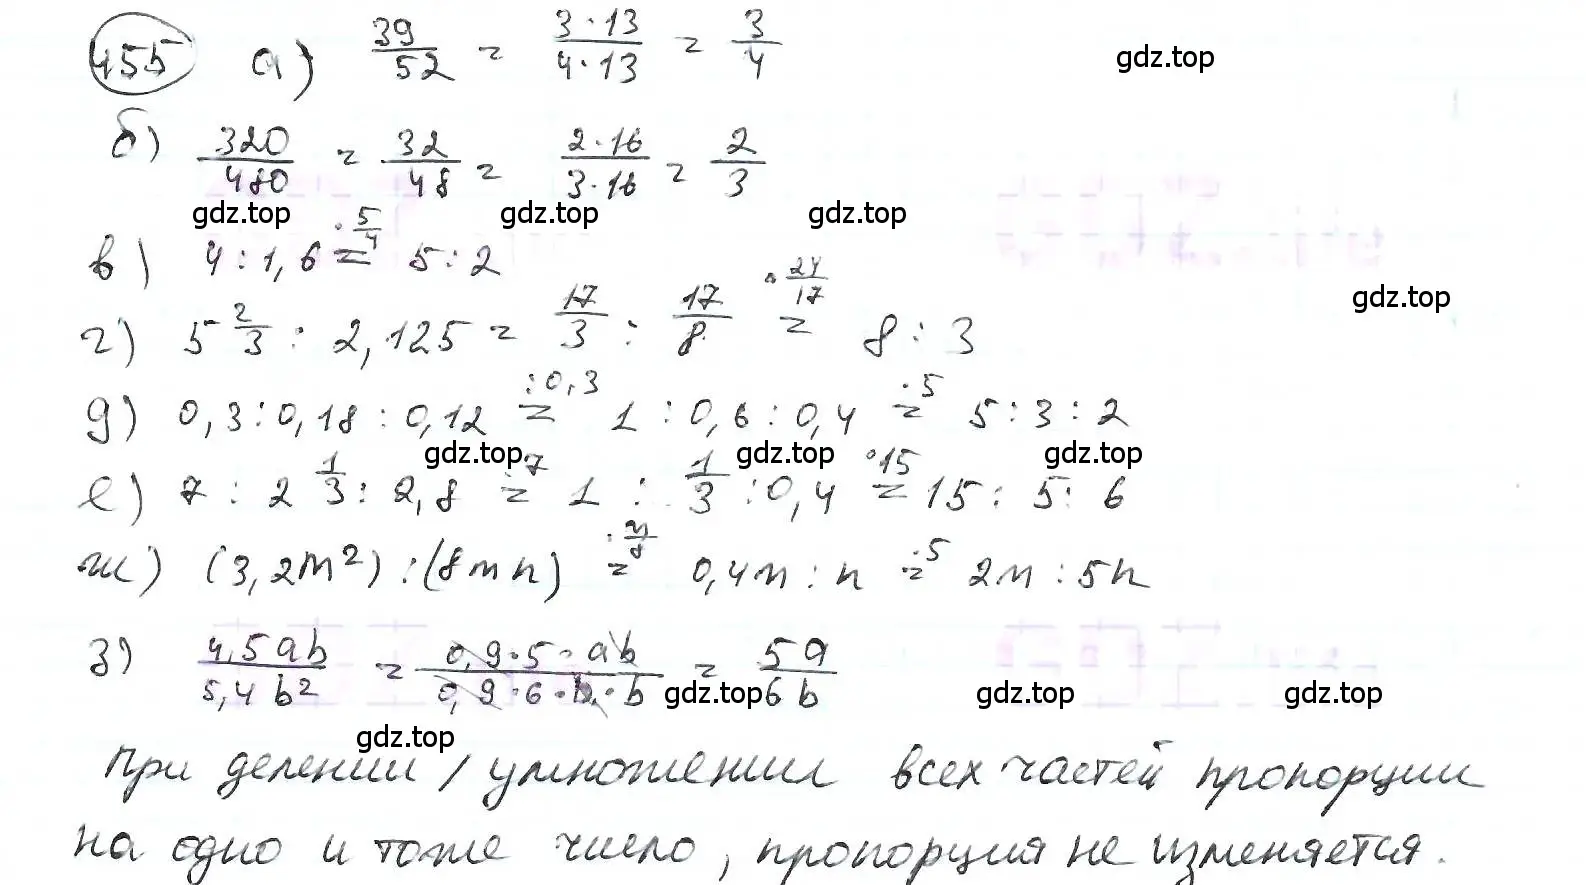 455 а) 39/52 = 3·13/4·13 = 3/4 gdz.top
б) 320/480 = 32/48 = 2·16/3·16 = 2/3
gdz.top gdz.top gdz.top
в) 4 : 1,6 =^{·5/4} 5 : 2
г) 5 2/3 : 2,125 = 17/3 : 17/8 =^{·24/17} 8 : 3 gdz.top
д) 0,3 : 0,18 : 0,12 =^{:0,3} 1 : 0,6 : 0,4 =^{·5} 5 : 3 : 2
gdz.top gdz.top gdz.top
е) 7 : 2 1/3 : 2,8 =^{:7} 1 : 1/3 : 0,4 =^{·15} 15 : 5 : 6
ж) (3,2m²) : (8mn) = 0,4m : n =^{·5} 2m : 5n
з) 4,5ab/5,4b² = 0,9·5·ab/0,9·6·b·b = 5a/6b
gdz.top gdz.top gdz.top
gdz.top
При делении / умножении всех частей пропорции
на одно и тоже число, пропорция не изменяется.